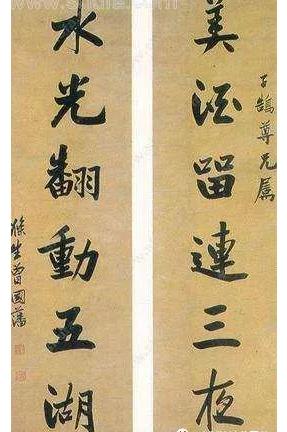 子鵠尊兄屬
美酒留連三夜
水光翻動五湖
滌生曾國藩